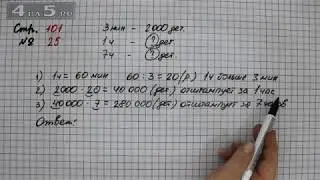 4a5.ru
Стр. 101
№ 25
3 мин – 2000 дет.
1ч – ? дет.
7ч – ?
1) 1ч = 60 мин 60 : 3 = 20 (р.) 1ч больше 3 мин
2) 2000 · 20 = 40 000 (дет) отштампует за 1 час
3) 40 000 · 7 = 280 000 (дет) отштампует за 7 часов
Ответ: